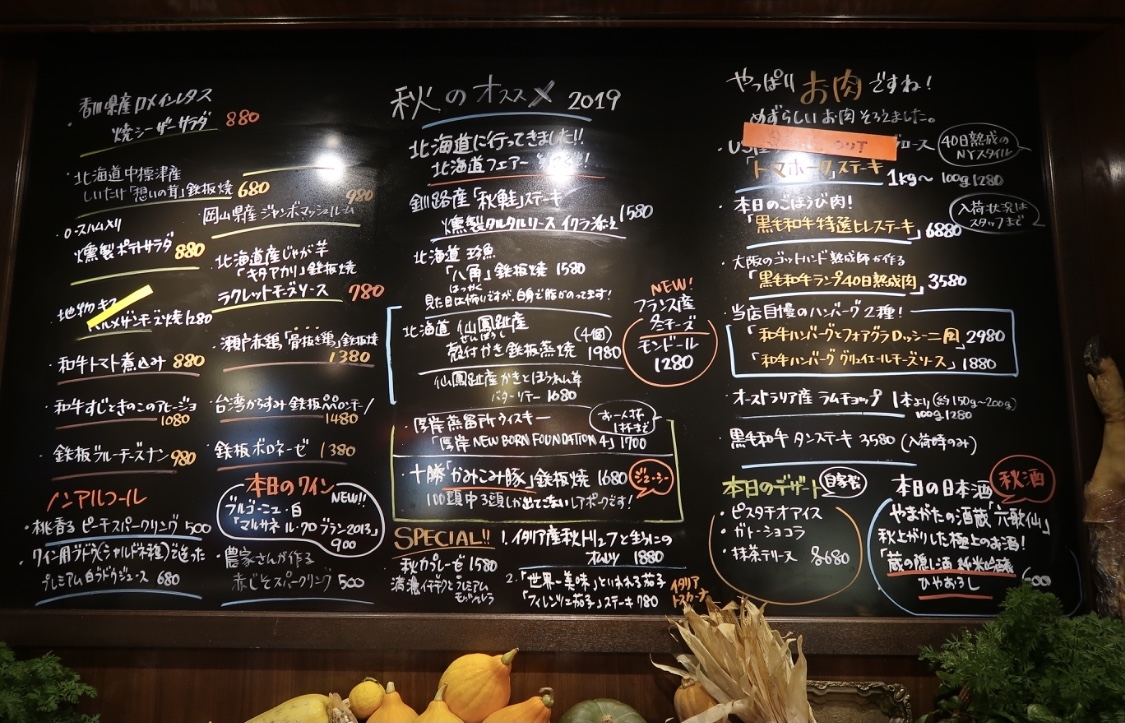 香川県産ロメインレタス
焼シーザーサラダ 880
北海道中標津産
しいたけ「想いの茸」鉄板焼 680
980
岡山県産 ジャンボマッシュルーム
ロースハム入り
燻製ポテトサラダ 880
北海道産じゃが芋
「キタアカリ」鉄板焼
ラクレットチーズソース 780
地物
パルメザンチーズ焼 1280
瀬戸赤鶏「骨抜き鶏」鉄板焼
1380
和牛トマト煮込み 880
和牛すじときのこのアヒージョ
1080
台湾からすみ 鉄板ペペロンチーノ
1480
鉄板ブルーチーズナン 980
鉄板ボロネーゼ 1380
ノンアルコール
桃香る ピーチスパークリング 500
ワイン用ブドウ(シャルドネ種)で造った
プレミアム白ブドウジュース 680
本日のワイン
NEW!!
ブルゴーニュ・白
「マルサネ ル・クロ ブラン2013」
900
農家さんが作る
赤じそスパークリング 500
秋のオススメ 2019
北海道に行ってきました!!
北海道フェアー
釧路産「秋鮭」ステーキ
燻製タルタルソース イクラ添え 1580
北海道 珍魚
「八角」鉄板焼 1580
はっかく
見た目は怖いですが、白身で脂がのってます!
北海道 仙鳳趾産
せんぽうし
(4個)
殻付かき鉄板蒸焼 1980
仙鳳趾産かきとほうれん草
バターソテー 1680
NEW!
フランス産
冬チーズ
モンドール
1280
厚岸蒸留所ウィスキー
「厚岸 NEW BORN FOUNDATION 4」1700
お一人様
1杯まで
十勝「かみこみ豚」鉄板焼 1680
ジューシー
100頭中3頭しか出て来ないレアポークです!
SPECIAL!!
秋カプレーゼ 1580
濃濃イチジクとプレミアム
モッツァレラ
1. イタリア産秋トリュフと生ハムの
オムレツ 1880
2.「世界一美味」といわれる茄子
「フィレンツェ茄子」ステーキ 780
イタリア
トスカーナ
やっぱり お肉 ですね!
めずらしいお肉そろえました。
US産 ロース
「トマホーク」ステーキ 1kg〜 100g 1280
40日熟成の
NYスタイル
本日のごほうび肉!
「黒毛和牛特選ヒレステーキ」 6880
入荷状況は
スタッフまで
大阪のゴッドハンド熟成師が作る
「黒毛和牛ランプ40日熟成肉」 3580
当店自慢のハンバーグ2種!
「和牛ハンバーグとフォアグラ ロッシーニ風」 2980
「和牛ハンバーグ グリュイエールチーズソース」 1880
オーストラリア産 ラムチョップ 1本より(約150g〜200g)
100g 1280
黒毛和牛 タンステーキ 3580 (入荷時のみ)
本日のデザート
自家製
ピスタチオアイス
ガトーショコラ
抹茶テリーヌ 各680
本日の日本酒
秋酒
やまがたの酒蔵「六歌仙」
秋上がりした極上のお酒!
「蔵の隠し酒 純米吟醸
ひやおろし」
600